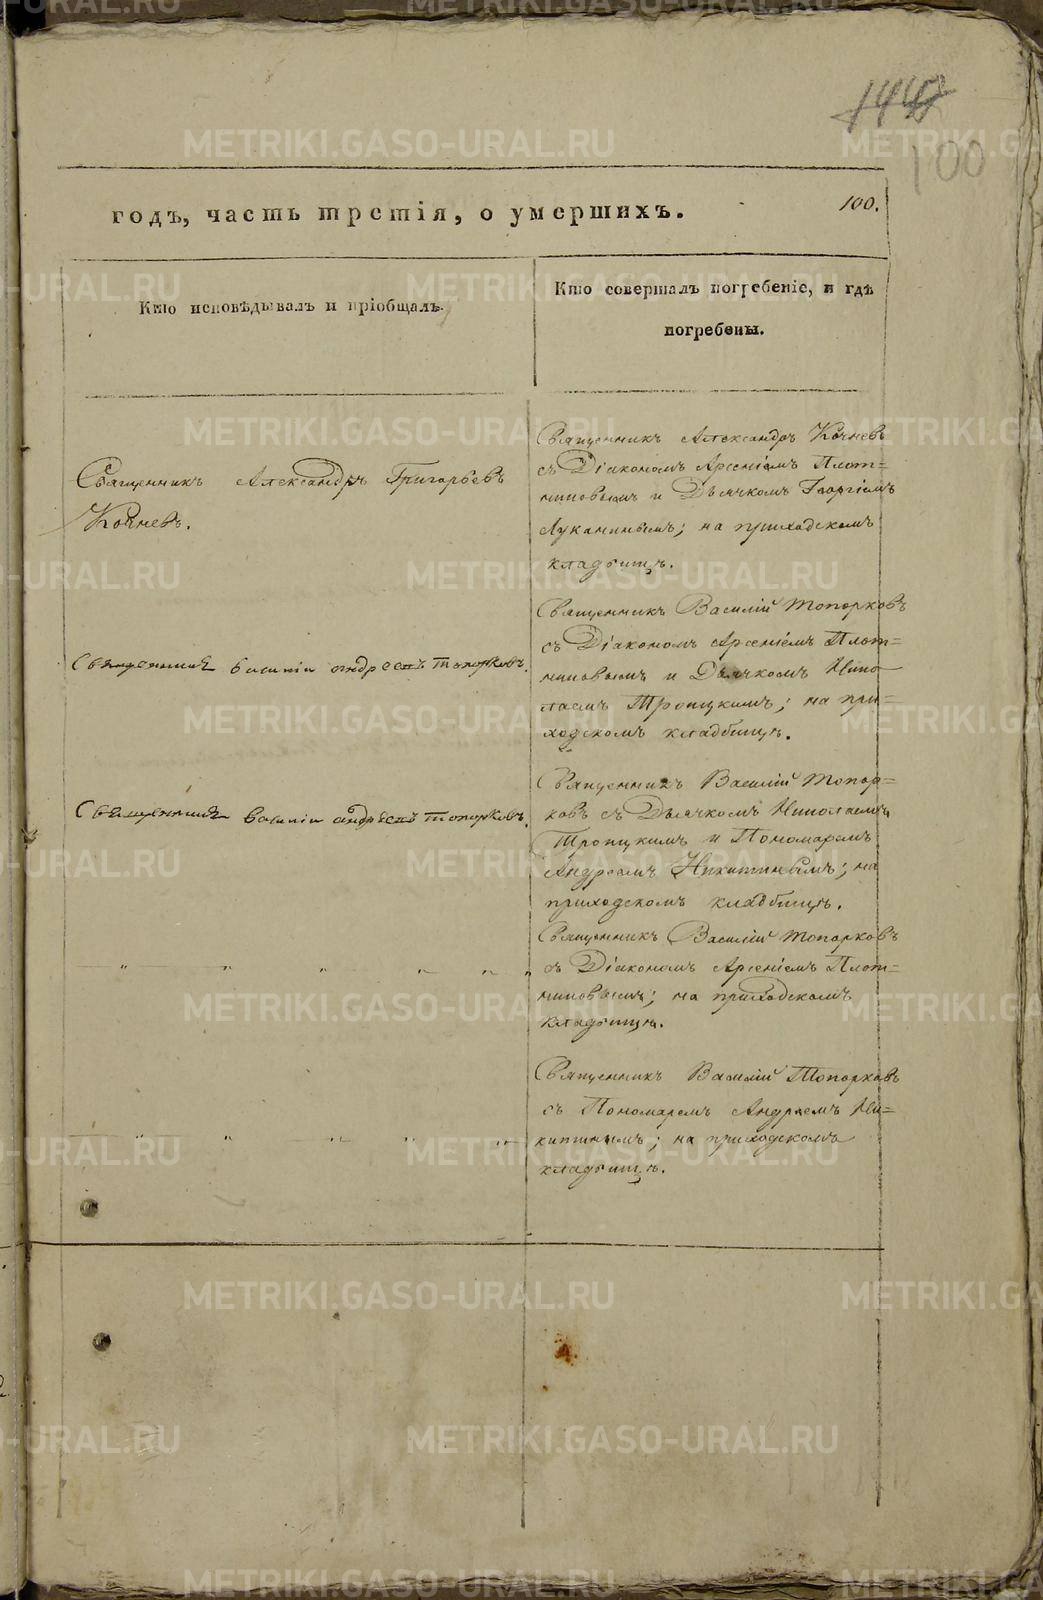 100
100.
годъ, часть третія, о умершихъ.
Кто исповѣдывалъ и пріобщалъ.
Кто совершалъ погребеніе, и гдѣ
погребены.
Священникъ Александръ Григорьевъ
Кочневъ.
Священникъ Александръ Кочневъ
съ Діакономъ Арсеніемъ Плот=
никовымъ и Дьячкомъ Георгіемъ
Луканинымъ; на приходскомъ
кладбищѣ.
Священникъ василіи андреевъ топорковъ.
Священникъ Василій Топорковъ
съ Діакономъ Арсеніемъ Плот=
никовымъ и Дьячкомъ Нико
лаемъ Троицкимъ; на при=
ходскомъ кладбищѣ.
Священникъ василіи андреевъ топорковъ.
Священникъ Василій Топор=
ковъ съ Дьячкомъ Николаемъ
Троицкимъ и Пономаремъ
Андреемъ Никитинымъ; на
приходскомъ кладбищѣ.
" " " " " "
Священникъ Василій Топорковъ
съ Діакономъ Арсеніемъ Плот=
никовымъ; на приходскомъ
кладбищѣ.
" " " " "
Священникъ Василій Топорковъ
съ Пономаремъ Андреемъ Ни=
китинымъ; на приходскомъ
кладбищѣ.
METRIKI.GASO-URAL.RU